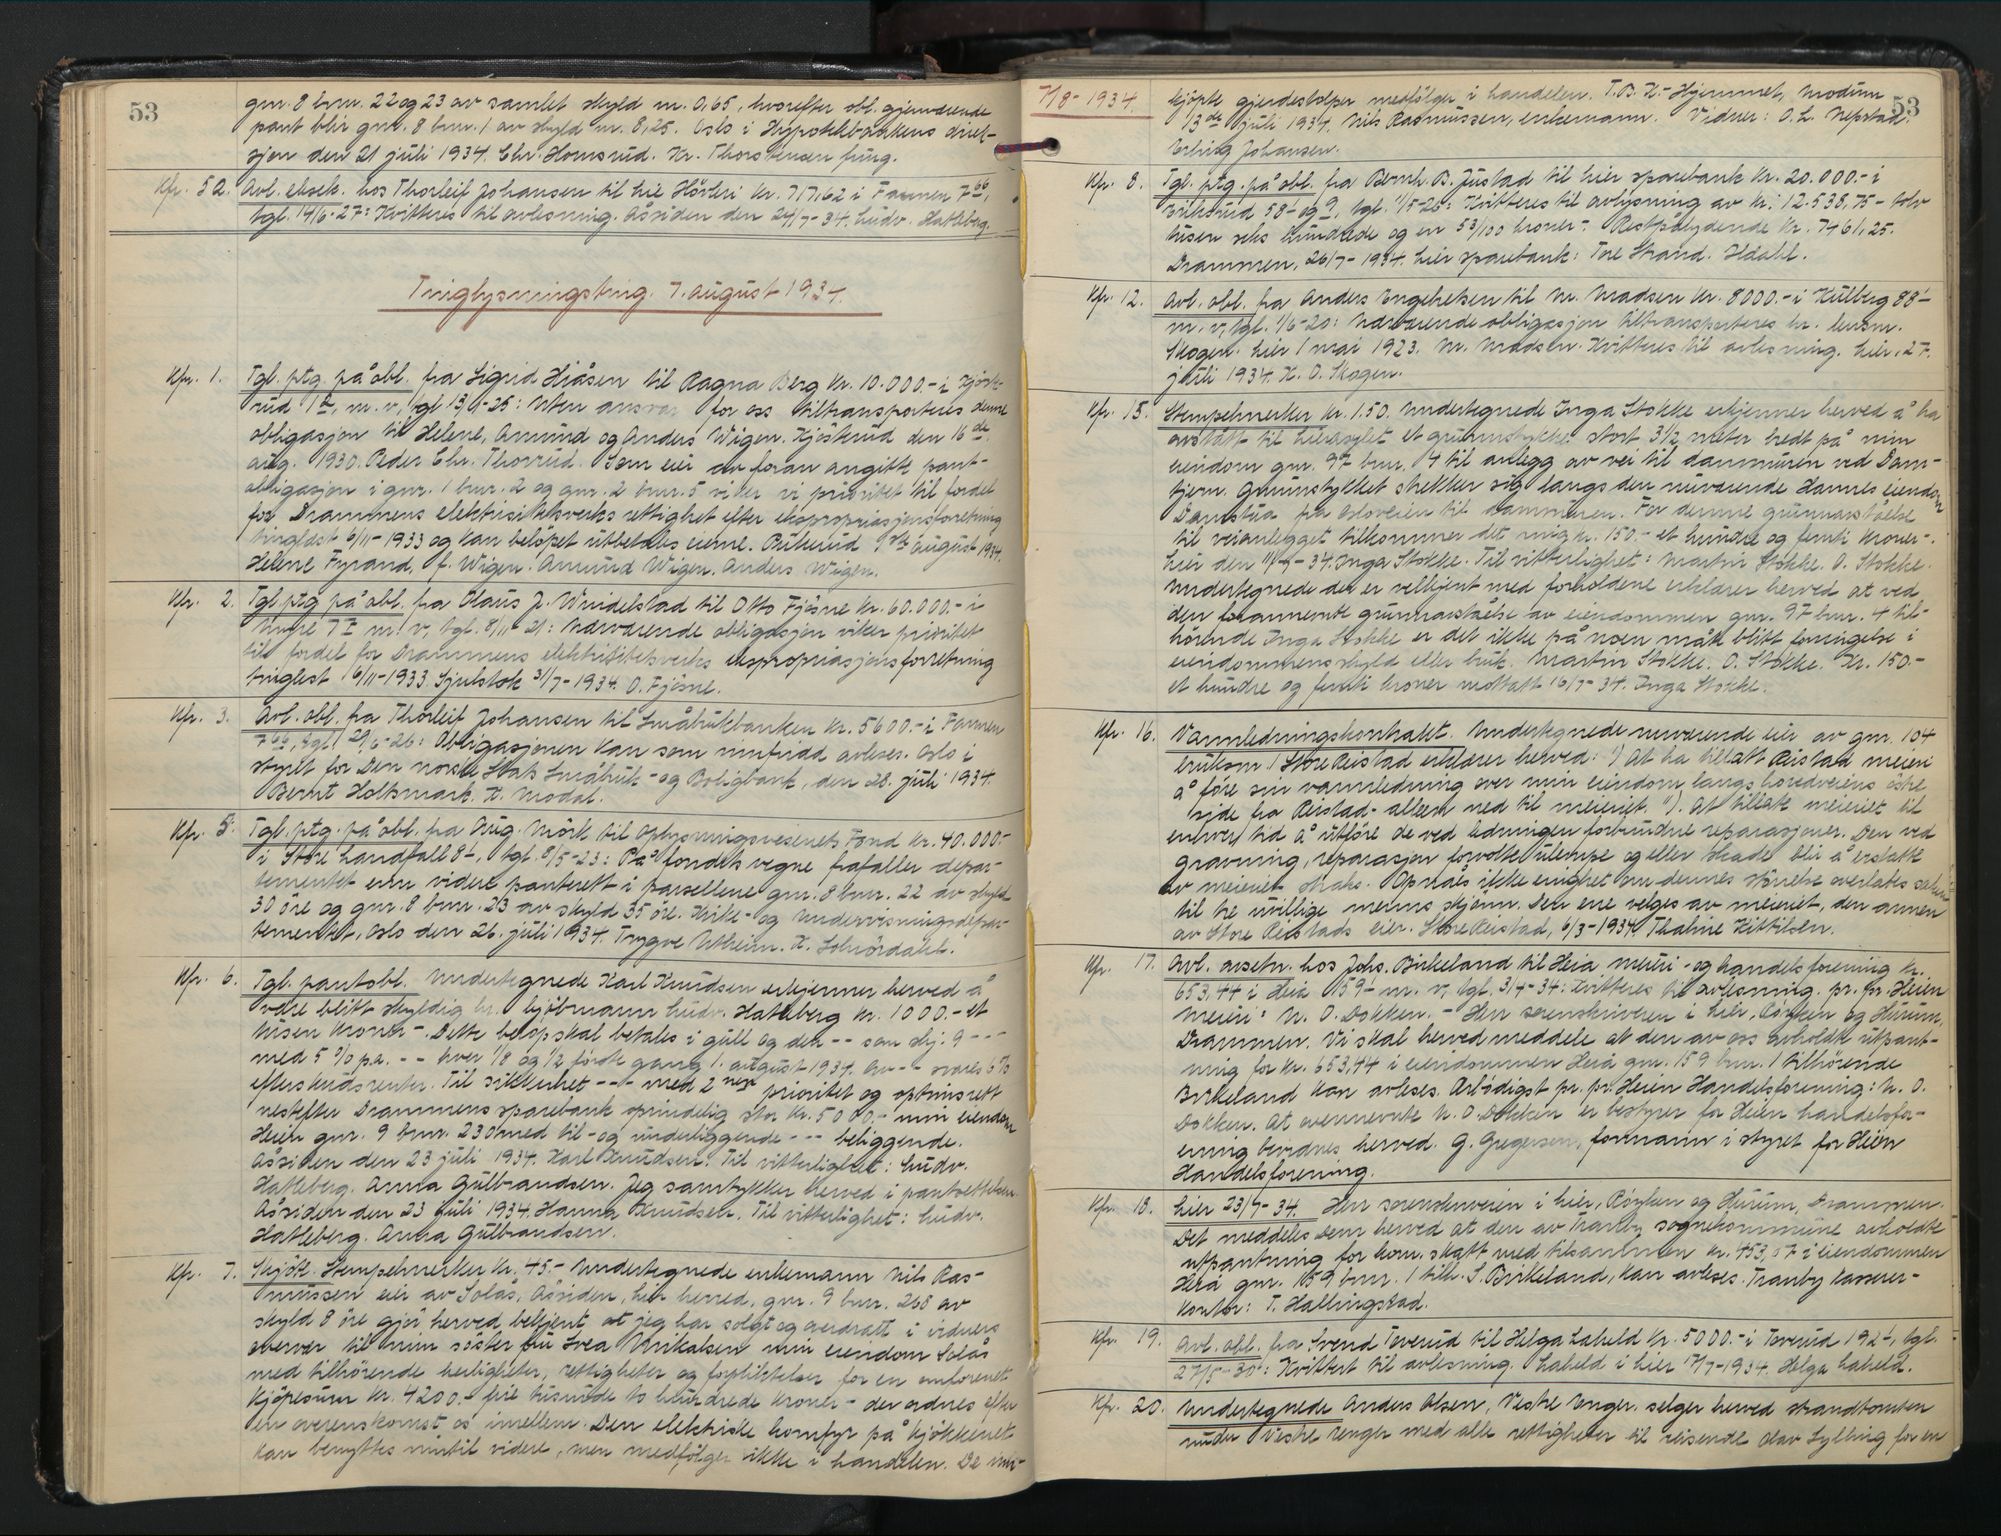 53
gnr. 8 bnr. 22 og 23 av samlet skyld m. 0,65, hvorefter obl. gjenværende
pant blir gnr. 8 bnr. 1 av skyld m. 8,25. Oslo i Hypotekbankens direk-
sjon den 21 juli 1934. Chr. Homsrud. Kr. Thorstensen fung.
Kfr. 52. Avl. eksek. hos Thorleif Johansen til Lie Hörteri kr. 717,62 i Farmen 7 66,
tgl. 14/6-27: Kvitteres til avlesning. Åssiden den 24/7-34. Ludv. Hatleberg.
Tinglysningsdag. 7. august 1934.
Kfr. 1. Tgl. ptg. på obl. fra Sigurd Hiåsen til Ragna Berg kr. 10.000.- i Kjöst-
rud 1 2, m. v., tgl 13/1-25: Uten ansvar for oss tiltransporteres denne
obligasjon til Helene, Amund og Anders Wigen. Kjöstrud den 16 de
aug. 1930. Peder Chr. Thorrud. Som eier av foran angitte pant-
obligasjon i gnr. 1 bnr. 2 og gnr. 2 bnr. 5 viker vi prioritet til fordel
for Drammens elektrisitetsverks rettighet efter ekspropriasjonsforretning
tinglest 6/11-1933 og kan belöpet utbetales eierne. Bukerud 1 ste august 1934.
Helene Fyrand, f. Wigen. Amund Wigen. Anders Wigen.
Kfr. 2. Tgl ptg på obl. fra Olaus J. Windelstad til Otto Fjösne kr. 60.000.- i
7 1 m. v., tgl. 8/11-21: Nærværende obligasjon viker prioritet
til fordel for Drammens elektrisitetsverks ekspropriasjonsforretning
tinglest 6/11-1933. Sjulstok 31/7-1934. O. Fjösne.
Kfr. 3. Avl. obl. fra Thorleif Johansen til Småbrukbanken kr. 5600.- i Farmen
7 66, tgl. 29/6-26: Obligasjonen kan som innfridd avleses. Oslo i
styret for Den norske Stats Småbruk- og Boligbank, den 28. juli 1934.
Bernt Holtsmark. K. Modal.
Kfr. 5. Tgl. ptg. på obl. fra Aug. Mörk til Oplysningsvesenets Fond kr. 40.000.-
i Store Landfall 8 1, tgl. 8/5-23: På fondets vegne frafaller depar-
tementet enn videre panterett i parsellene gnr. 8 bnr. 22 av skyld
30 öre og gnr. 8 bnr. 23 av skyld 35 öre. Kirke- og Undervisningsdepar-
tementet, Oslo den 26. juli 1934. Trygve Utheim. K.
Kfr. 6. Tgl. pantobl. Undertegnede Karl Knudsen erkjenner herved å
være blitt skyldig hr. kjöbmann Ludv. Hatleberg kr. 1000.- et
tusen kroner-. Dette belöp skal betales i gull og den -- som skj: 9 ---
med 5 % p.a. -- hver 1/8 og 1/2 förste gang 1. august 1934. Av -- svares 6 %
efterskuddsrenter. Til sikkerhet --- med 2 nen prioritet og optrinsrett
nestefter Drammens sparebank oprindelig stor kr. 5000,- min eiendom
Heien gnr. 9 bnr. 230 med til- og underliggende --- beliggende.
Åssiden den 23 juli 1934. Karl Knudsen. Til vitterlighet: Ludv.
Hatleberg. Anna Gulbrandsen. Jeg samtykker herved i pantsettelsen.
Åssiden den 23 juli 1934. Hanna Knudsen. Til vitterlighet: Ludv.
Hatleberg. Anna Gulbrandsen.
Kfr. 7. Skjöte. Stempelmerker kr. 45.- Undertegnede enkemann Nils Ras-
mussen eier av Solås, Åssiden, Lier herred, gnr. 9 bnr. 268 av
skyld 8 öre gjör herved bekjent at jeg har solgt og overdratt i
overver til min söster fru Svea Mikalsen min eiendom Solås
med tilhörende herligheter, rettigheter og forpliktelser for en omforenet
kjöpesum kr. 4200.- fire tusinde to hundrede kroner - der ordnes efter
en overenskomst os imellem. Den elektriske komfyr på kjökkenet
kan benyttes inntil videre, men medfölger ikke i handelen. De inn-
7/8-1934.
53
kjöpte gjerdestolper medfölger i handelen. T.B.K.- Hjemmet, Modum
13 de juli 1934. Nils Rasmussen, enkemann. Vidner: O. L. Nepstad.
Erling Johansen.
Kfr. 8. Tgl. ptg. på obl. fra Bernh. B. Justad til Lier sparebank kr. 20.000.- i
Eriksrud 58 1 og 9, tgl. 1/5-26: Kvitteres til avlysning av kr. 12.538,75 - tolv
tusen seks hundrede og en 53/100 kroner-. Restpålydende kr. 7461,25.
Drammen, 26/7-1934. Lier sparebank: Tore Strand. Hdahl.
Kfr. 12. Avl. obl. fra Anders Engebretsen til M. Madsen kr. 8000.- i Hulberg 88 1
m. v., tgl. 1/6-20: Nærværende obligasjon tiltransporteres hr. lensm.
Skogen. Lier 1 mai 1923. M. Madsen. Kvitteres til avlesning. Lier, 27.
juli 1934. K. O. Skogen.
Kfr. 15. Stempelmerker kr. 1.50. Undertegnede Inga Stokke erkjenner herved å ha
avstått til Lierasylet et grunnstykke stort 3 1/2 meter bredt på min
eiendom gnr. 97 bnr. 4 til anlegg av vei til dammuren ved Dam-
tjern. Grunnstykket strekker sig langs den nuværende Hannes eiendom
Damstua fra Osloveien til dammuren. For denne grunnavståelse
til veianlegget tilkommer det mig kr. 150.- et hundre og femti kroner-.
Lier den 11/7-34. Inga Stokke. Til vitterlighet: Martin Stokke. O. Stokke.
Undertegnede der er velkjent med forholdene erklærer herved at ved
den forannevnte grunnavståelse av eiendommen gnr. 97 bnr. 4 til-
hörende Inga Stokke er det ikke på noen måte blitt forringelse i
eiendommens skyld eller bruk. Martin Stokke. O. Stokke. Kr. 150.-
et hundre og femti kroner mottatt 16/7-34. Inga Stokke.
Kfr. 16. Vannledningskontrakt. Undertegnede nuværende eier av gnr. 104
bruksnr. 1 Store Reistad erklærer herved: 1) At ha tillatt Reistad meieri
å före sin vannledning over min eiendom langs hovedveiens östre
side fra Reistad- alleen ned til meieriet. 11). At tillate meieriet til
enhver tid å utföre de ved ledningen forbundne reparasjoner. Den ved
gravning, reparasjon forvoldte ulempe og eller skade blir å erstatte
av meieriet straks. Opnåes ikke enighet om dennes störrelse overlates saken
til tre uvillige menns skjönn. Den ene velges av meieriet, den annen
av Store Reistads eier. Store Reistad, 6/3-1934. Thaline Kittilsen.
Kfr. 17. Avl. arsetn. hos Johs. Birkeland til Heia meieri- og handelsforening kr.
653,44 i Heia 159 1 m. v., tgl. 3/4-34: Kvitteres til avlesning. pr. pr. Heien
Meieri: N. O. Dokken. - Herr sorenskriveren i Lier, Röyken og Hurum,
Drammen. Vi skal herved meddele at den av oss avholdte utpant-
ning for kr. 653,44 i eiendommen Heia gnr. 159 bnr. 1 tilhörende
Birkeland kan avleses. Ærbödigst pr. pr. Heien Handelsforening: N. O.
Dokken. At ovennevnte N. O. Dokken er bestyrer for Heien handelsfor-
ening bevidnes herved. G. Gregersen, formann i styret for Heien
Handelsforening.
Kfr. 18. Lier 23/7-34. Herr sorenskriveren i Lier, Röyken og Hurum, Drammen.
Det meddeles Dem herved at den av Tranby sognekommune avholdte
utpantning for kom. skatt med tilsammen kr. 453,57 i eiendommen
Heia gnr. 159 bnr. 1 tilh. J. Birkeland, kan avleses. Tranby kasserer-
kontor: T. Hallingstad.
Kfr. 19. Avl. obl. fra Svend Toverud til Helga Laheld kr. 5000.- i Toverud 192 1, tgl.
27/5-30: Kvittert til avlesning. Laheld i Lier 17/7-1934. Helga Laheld.
Kfr. 20. Undertegnede Anders Olsen, Vestre Enger, selger herved strandtomten
under Vestre Enger med alle rettigheter til reisende Olav Sylling for en